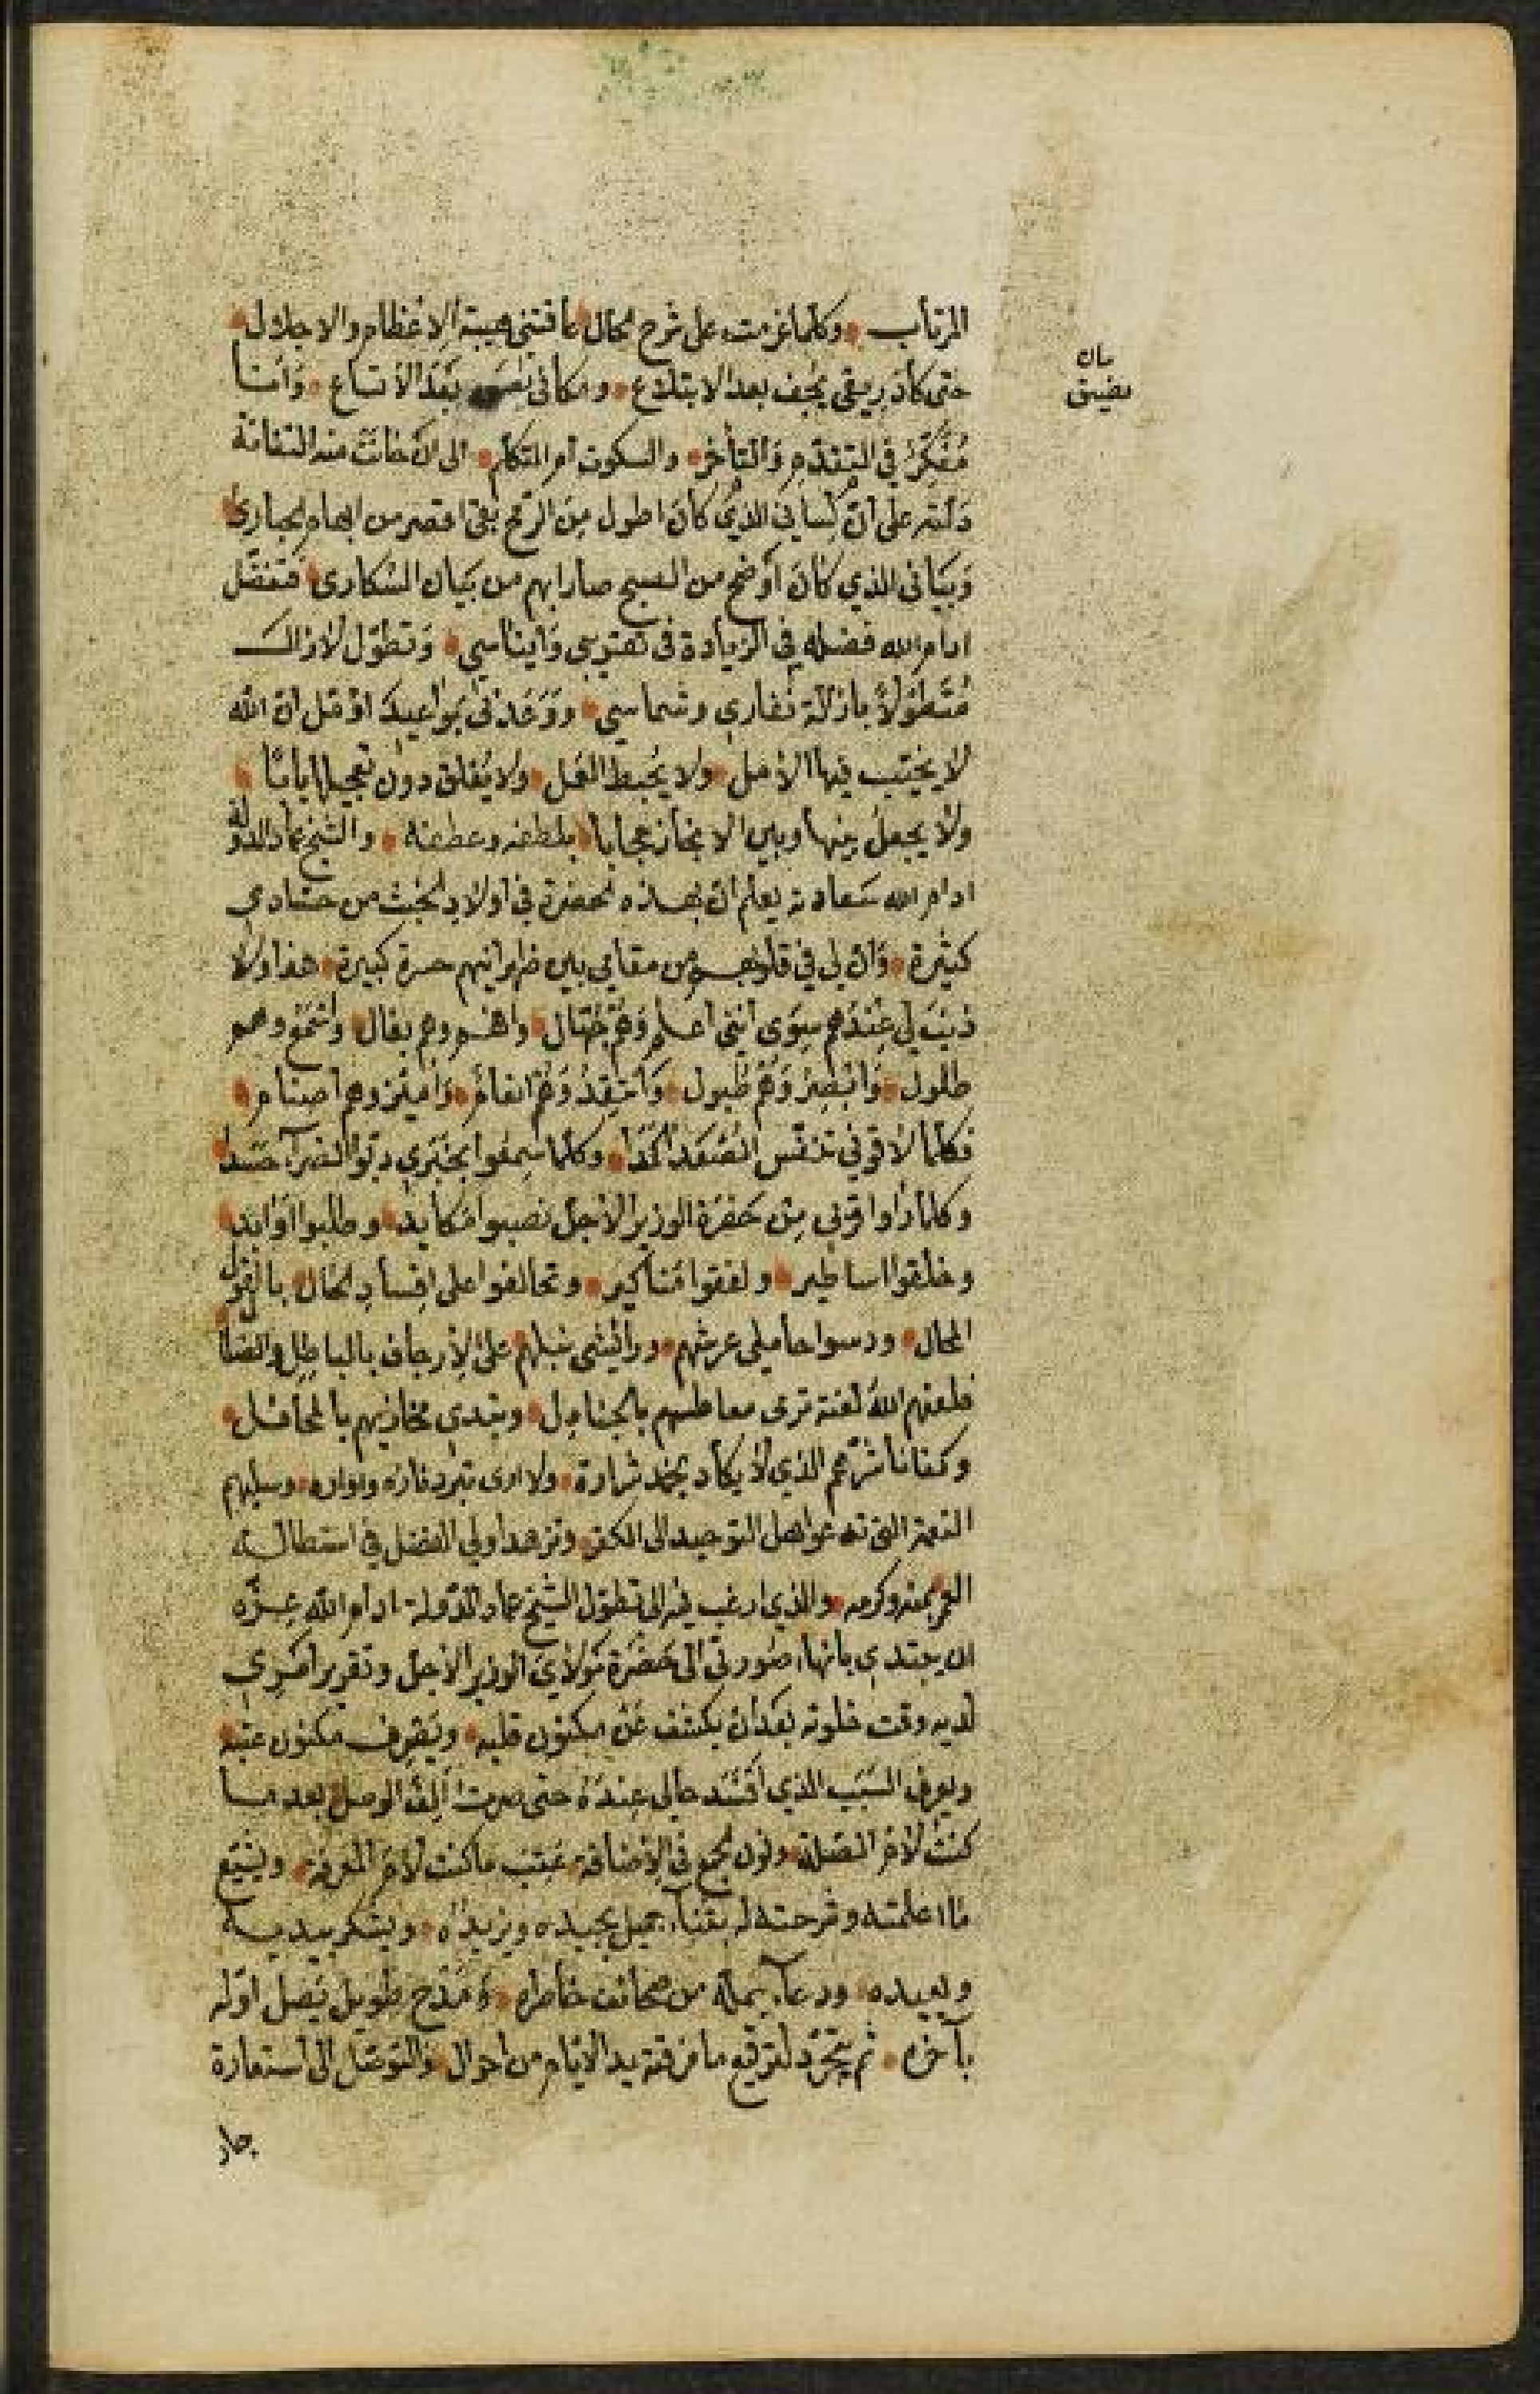 المرتاب وكلما عزمت على شرح الحال عاقتنى هيبة الاعظام والاجلال
حتى كاد ريقى يجف بعد الابتلاع ومكانى بعد الاتساع وانا
بيان
يضيق
مُفَكِّرٌ في التقدم والتأخر والسكوت ام التكلم الى ان حانت منه التفاتة
دلته على ان لساني الذي كان اطول من الرمح بقى اقصر من ابهام الحبارى
وبياني الذي كان اوضح من الصبح صار ابهم من بيان السكارى فتفضل
ادام الله فضله في الزيادة فى تقريبى وايناسي وتطول لازال
متطولا بازالة نفاري وشماسي ووعدنى بمواعيد اؤمل ان الله
لا يخيب فيها الامل ولا يحبط العمل ولا يغلق دون تعجيلها بابا
ولا يجعل بينها وبين الانجاز حجابا بلطفه وعطفه والشيخ عماد الدولة
ادام الله سعادته يعلم ان بهذه الحضرة في اولاد الخبث من حسادي
كثيرة وان لى في قلوبهم من مقامي بين ظهرانيهم حسرة كبيرة هذا ولا
ذنب لي عندهم سوى انني اعلم وهم جهال وافهم وهم بغال واسمع وهم
طلول وابصر وهم طبول وانتقد وهم انعام واميز وهم اصنام
فكلما لاقوني تنفس الصعدا وكلما سمعوا بخبري دبوا الضرآء حسدا
وكلما راوا قربي من حضرة الوزير الاجل نصبوا مكايد وطلبوا اوابد
وخلقوا اساطير ولفقوا مناكير وتحالفوا على افساد الحال بالقول
المحال ودسوا حاملى عرشهم ورائشى نبلهم على الارجاف بالباطل والضلال
فلعنهم الله لعنة ترمى معاطسهم بالجنادل وتبدى مخازيهم بالمحافل
وكفانا شرهم الذي لا يكاد يخمد شراره ولا ارى تبرد ناره واواره وسلبهم
النعمة التى تدعوا اهل التوحيد الى الكفر وتزهد اولي الفضل في استطالة
العمر بمنه وكرمه والذي ارغب فيه الى تطول الشيخ عماد الدولة ادام الله عزه
ان يبتدي بانهاء صورتي الى حضرة مولاي الوزير الاجل وتقرير امري
لديه وقت خلوته بعد ان يكشف عن مكنون قلبه ويعرف مكنون عتبه
ويعرف السبب الذي افسد حالى عنده حتى صرت الف الوصل بعد ما
كنت لام الصلة ونون الجمع في الاضافة عقيب ما كنت لام المعرفة ويشيع
ما اعلمته وشرحته له بثناء جميل يجيده ويزيده ويشكر يبديه
ويعيده ودعاء يمله من صحائف خاطره ومدح طويل يصل اوله
بآخره ثم يتجرد لترقيع ما مزقته يد الايام من احوالى والتوصل الى استعارة
جار